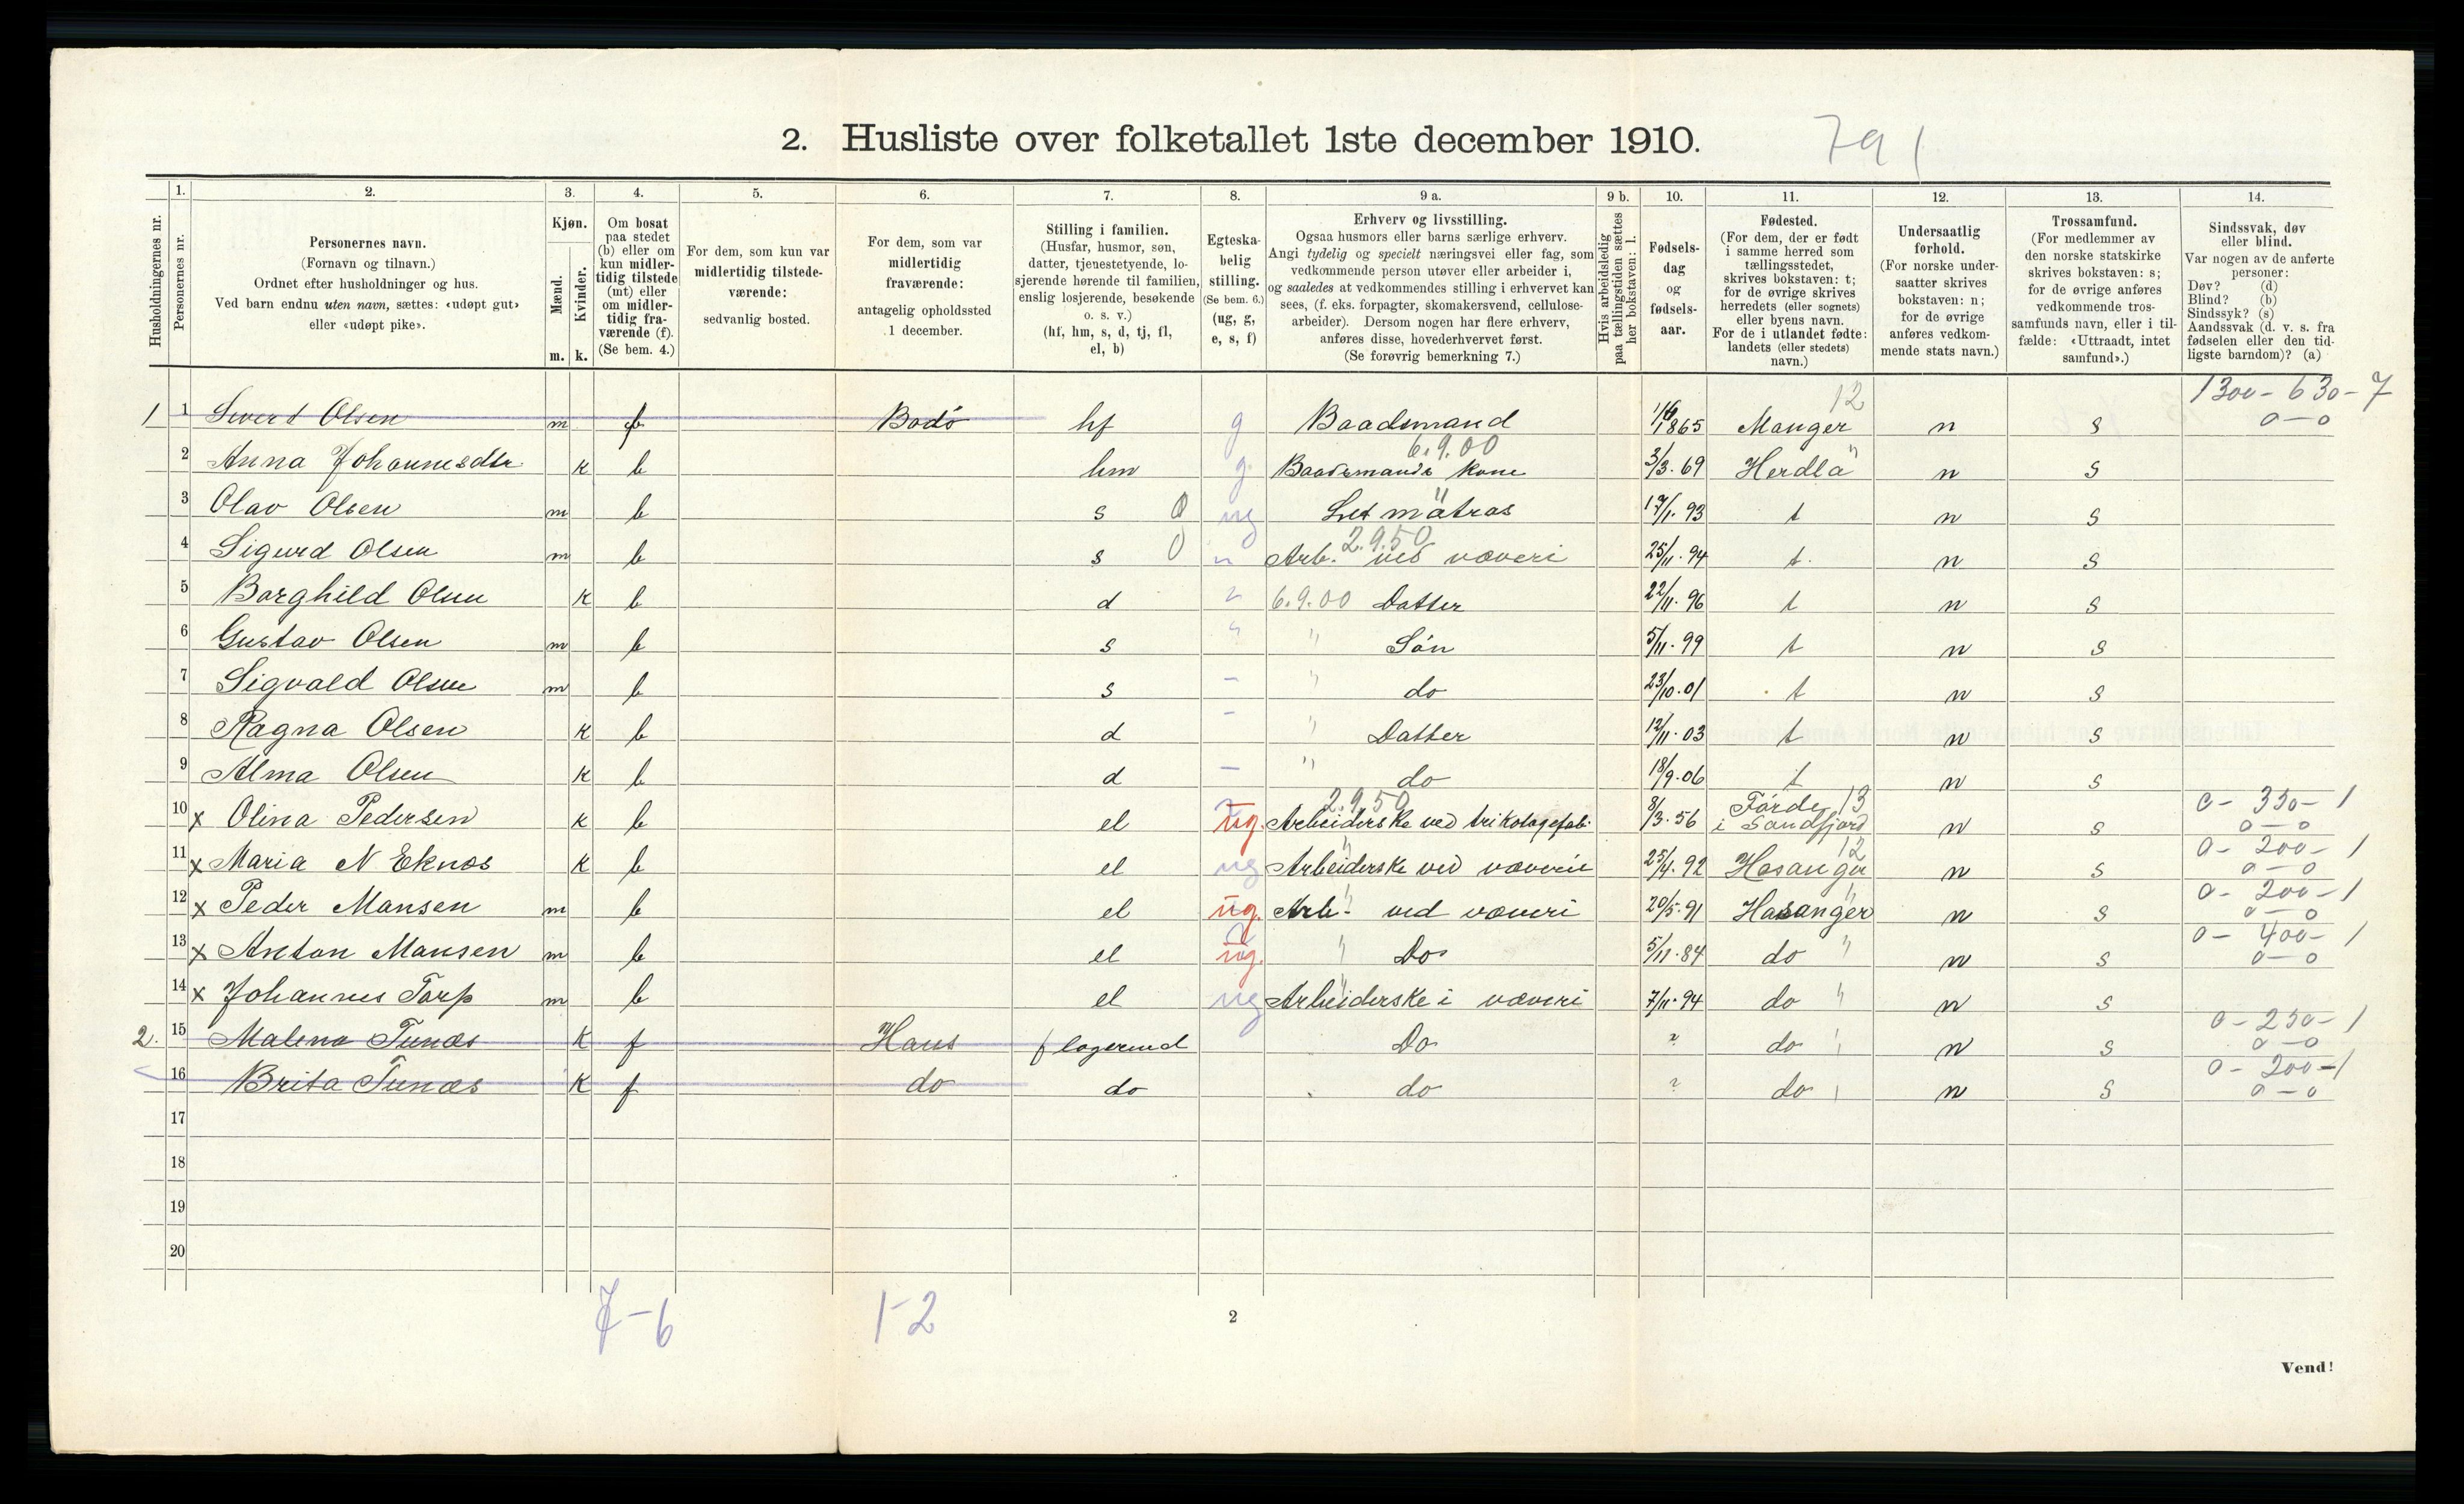 2. Husliste over folketallet 1ste december 1910.
791
Husholdningernes nr.
1.
Personernes nr.
2.
Personernes navn.
(Fornavn og tilnavn.)
Ordnet efter husholdninger og hus.
Ved barn endnu uten navn, sættes: «udøpt gut»
eller «udøpt pike».
3.
Kjøn.
Mænd.
Kvinder.
m. k.
4.
Om bosat
paa stedet
(b) eller om
kun midler-
tidig tilstede
(mt) eller
om midler-
tidig fra-
værende (f).
(Se bem. 4.)
5.
For dem, som kun var
midlertidig tilstede-
værende:
sedvanlig bosted.
6.
For dem, som var
midlertidig
fraværende:
antagelig opholdssted
1 december.
7.
Stilling i familien.
(Husfar, husmor, søn,
datter, tjenestetyende, lo-
sjerende hørende til familien,
enslig losjerende, besøkende
o. s. v.)
(hf, hm, s, d, tj, fl,
el, b)
8.
Egteska-
belig
stilling.
(Se bem. 6.)
(ug, g,
e, s, f)
9 a.
Erhverv og livsstilling.
Ogsaa husmors eller barns særlige erhverv.
Angi tydelig og specielt næringsvei eller fag, som
vedkommende person utøver eller arbeider i,
og saaledes at vedkommendes stilling i erhvervet kan
sees, (f. eks. forpagter, skomakersvend, cellulose-
arbeider). Dersom nogen har flere erhverv,
anføres disse, hovederhvervet først.
(Se forøvrig bemerkning 7.)
9 b.
Hvis arbeidsledig
paa tællingstiden sættes
her bokstaven: l.
10.
Fødsels-
dag
og
fødsels-
aar.
11.
Fødested.
(For dem, der er født
i samme herred som
tællingsstedet,
skrives bokstaven: t;
for de øvrige skrives
herredets (eller sognets)
eller byens navn.
For de i utlandet fødte:
landets (eller stedets)
navn.)
12.
Undersaatlig
forhold.
(For norske under-
saatter skrives
bokstaven: n;
for de øvrige
anføres vedkom-
mende stats navn.)
13.
Trossamfund.
(For medlemmer av
den norske statskirke
skrives bokstaven: s;
for de øvrige anføres
vedkommende tros-
samfunds navn, eller i til-
fælde: «Uttraadt, intet
samfund».)
14.
Sindssvak, døv
eller blind.
Var nogen av de anførte
personer:
Døv? (d)
Blind? (b)
Sindssyk? (s)
Aandssvak (d. v. s. fra
fødselen eller den tid-
ligste barndom)? (a)
12 1300-630-7
1 1 Sivert Olsen m f Bodö hf g Baadsmand 1865 Manger n s 0-0
6.9.00
2 Anna Johannesdtr k b hm g Baadsmands kone 3/3.69 Herdla " n s
3 Olav Olsen m b s 0 ug Let matros 17/1.93 t n s
2.9.50
4 Sigurd Olsen m b s 0 " Arb. ved væveri 25/11.94 t. n s
5 Borghild Olsen k b d " 6.9.00 Datter 22/11.96 t n s
6 Gustav Olsen m b s " " Sön 5/11.99 t n s
7 Sigvald Olsen m b s - " do 23/10.01 t n s
8 Ragna Olsen k b d - " Datter 12/11.03 t n s
9 Alma Olsen k b d - " do 18/9.06 t n s
2.9.50 Förde 13 0-350-1
10 x Olina Pedersen k b el ug. Arbeiderske ved trikotagefab. 8/3.56 i Sandfjord n s 0-0
12 0-200-1
11 x Maria N Eknæs k b el ug Arbeiderske ved væverie 25/4.92 Hosanger n s 0-0
0-200-1
12 x Peder Mansen m b el ug. Arb. " ved væveri 20/5.91 Hasanger " n s 0-0
0-400-1
13 x Anton Mansen m b el ug. " Do 5/11.84 do " n s 0-0
14 x Johannes Torp m b el ug Arbeiderske i væveri 7/11.94 do " n s
0-250-1
2. 15 Malena Tunæs k f Haus f logerend Do ? do " n s 0-0
0-200-1
16 Brita Tunæs k f do do do ? do " n s 0-0
17
18
19
20
7-6 1-2
2
Vend!